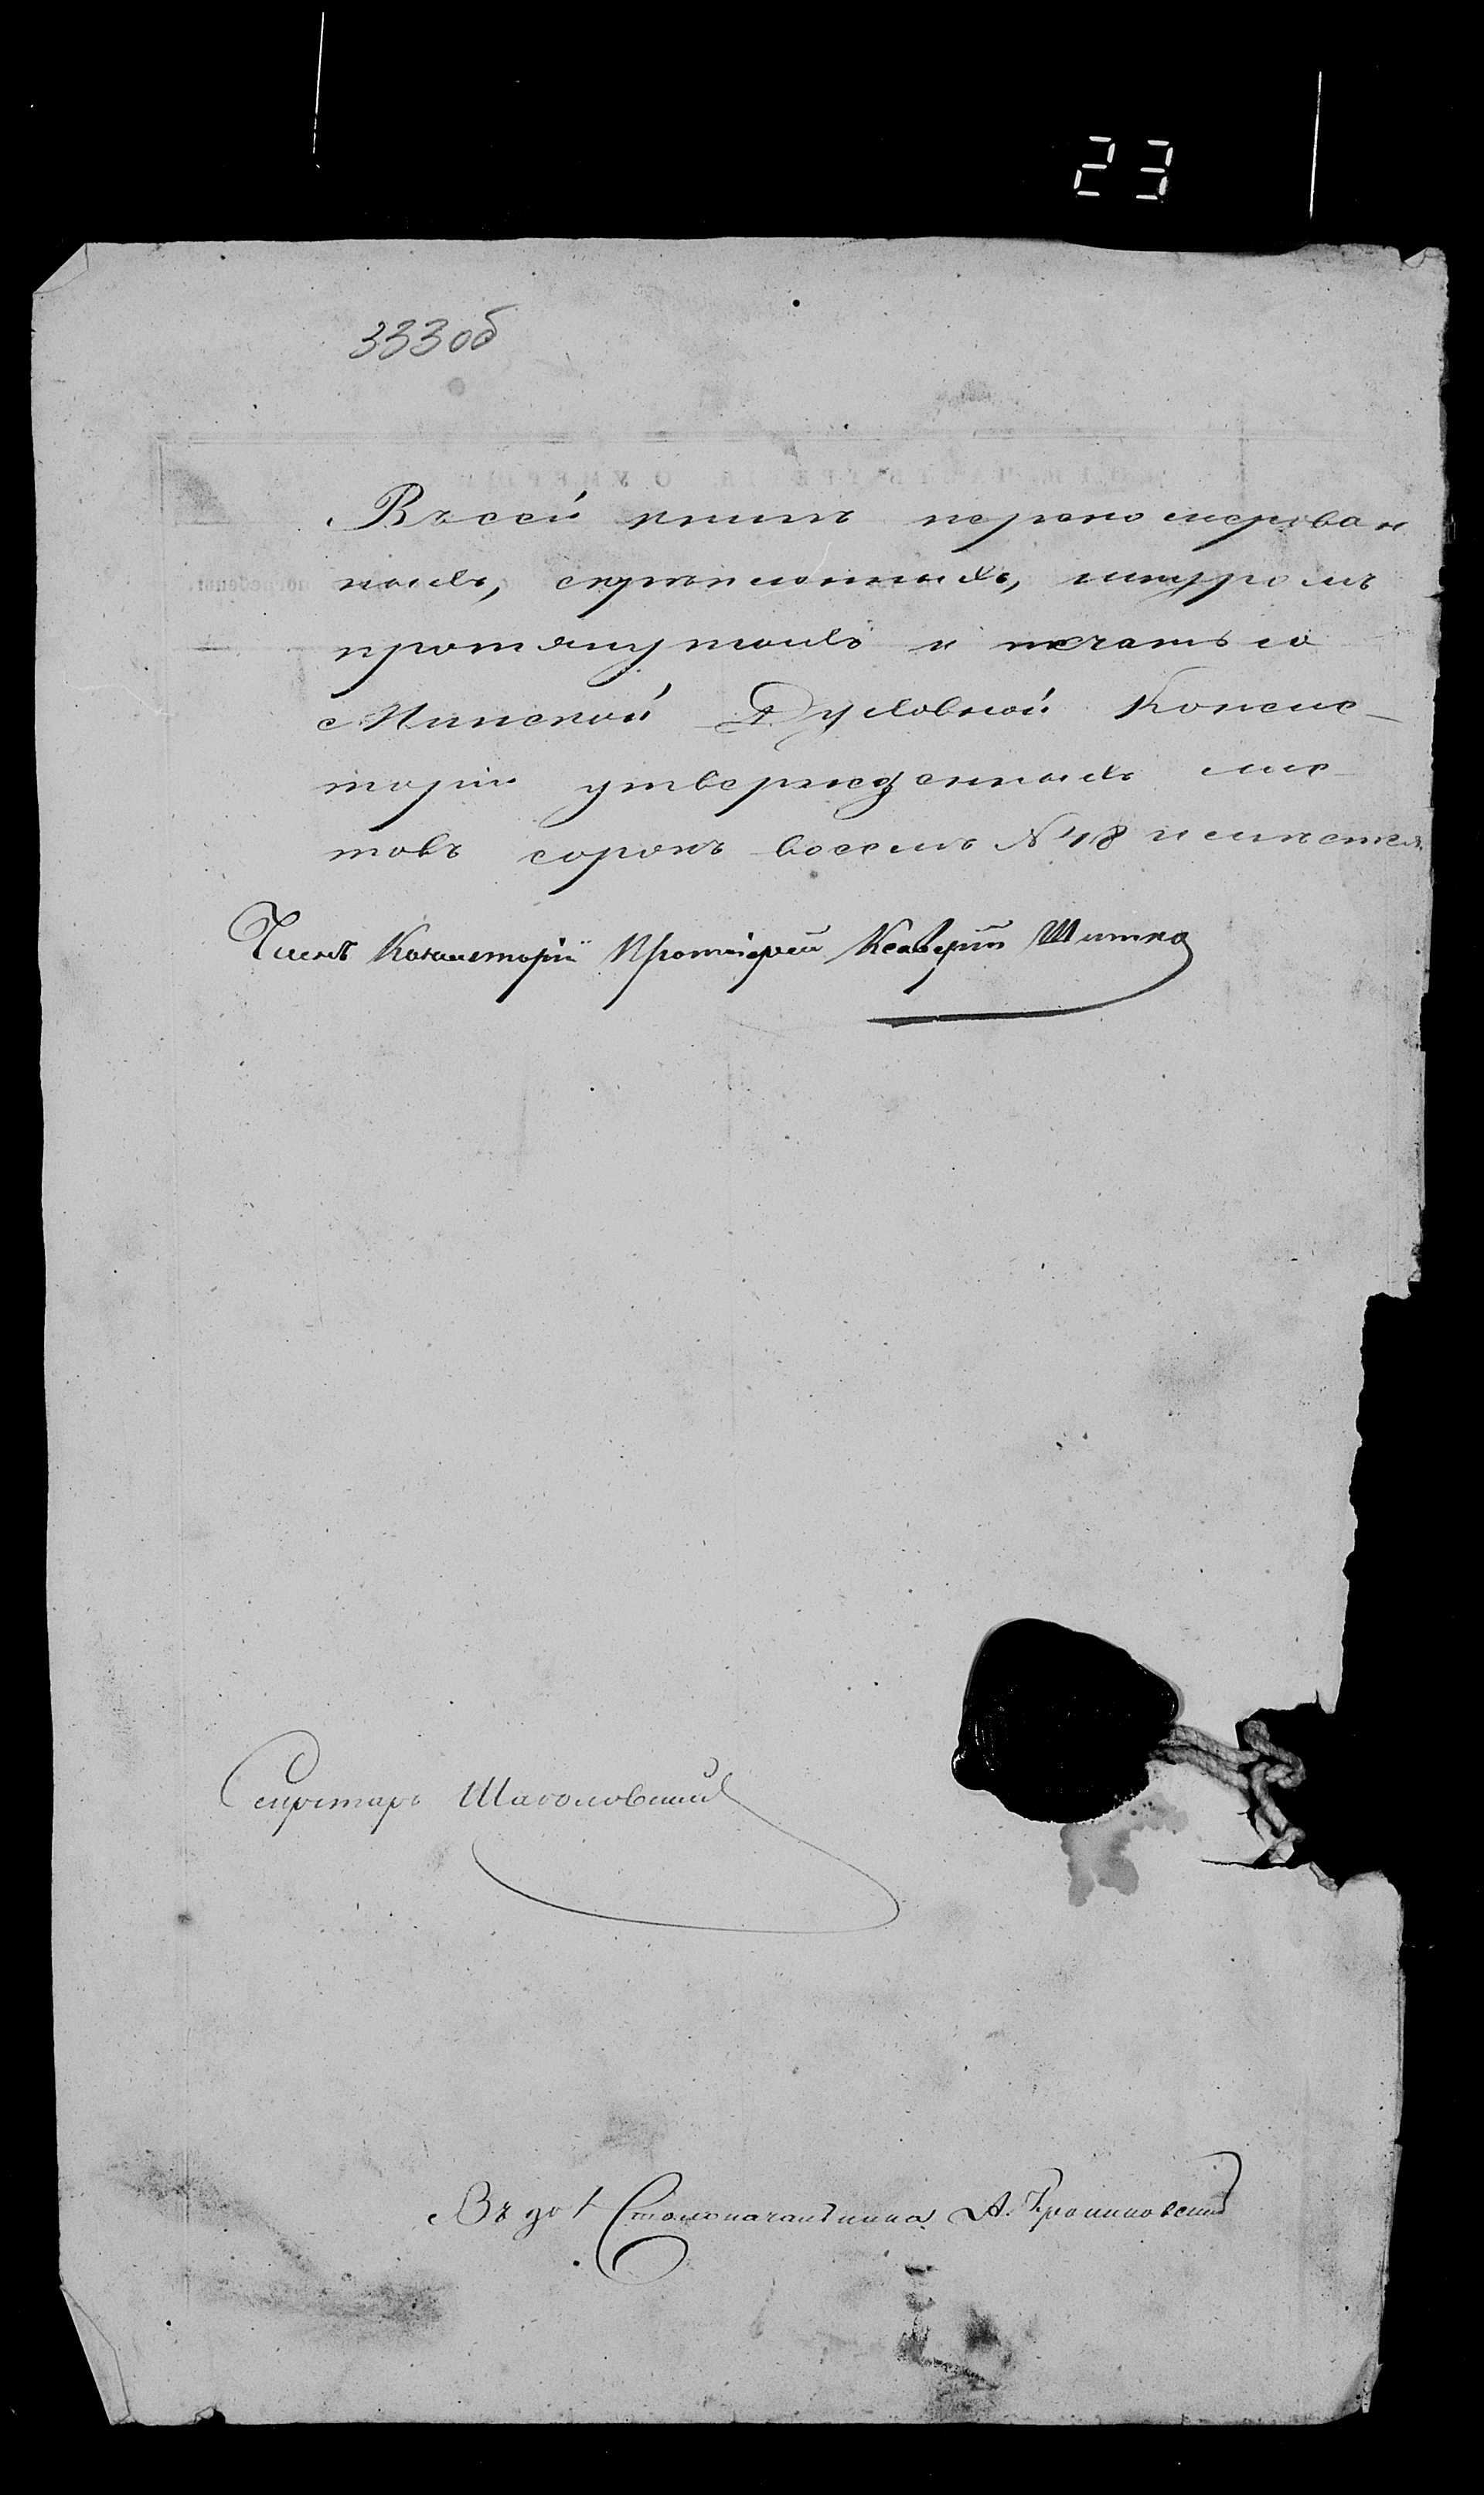 23
333об
Въ сей книгѣ перенумерован
ныхъ, скрѣпленныхъ, шнуромъ
протянутыхъ и печатью
Минской Духовной Консис-
торіи утвержденныхъ лис-
товъ сорокъ восемь № 48 имѣется.
Членъ Консисторіи Протоіерей Ксаверій Шитко
Секретарь
Въ до! Столоначальника А.